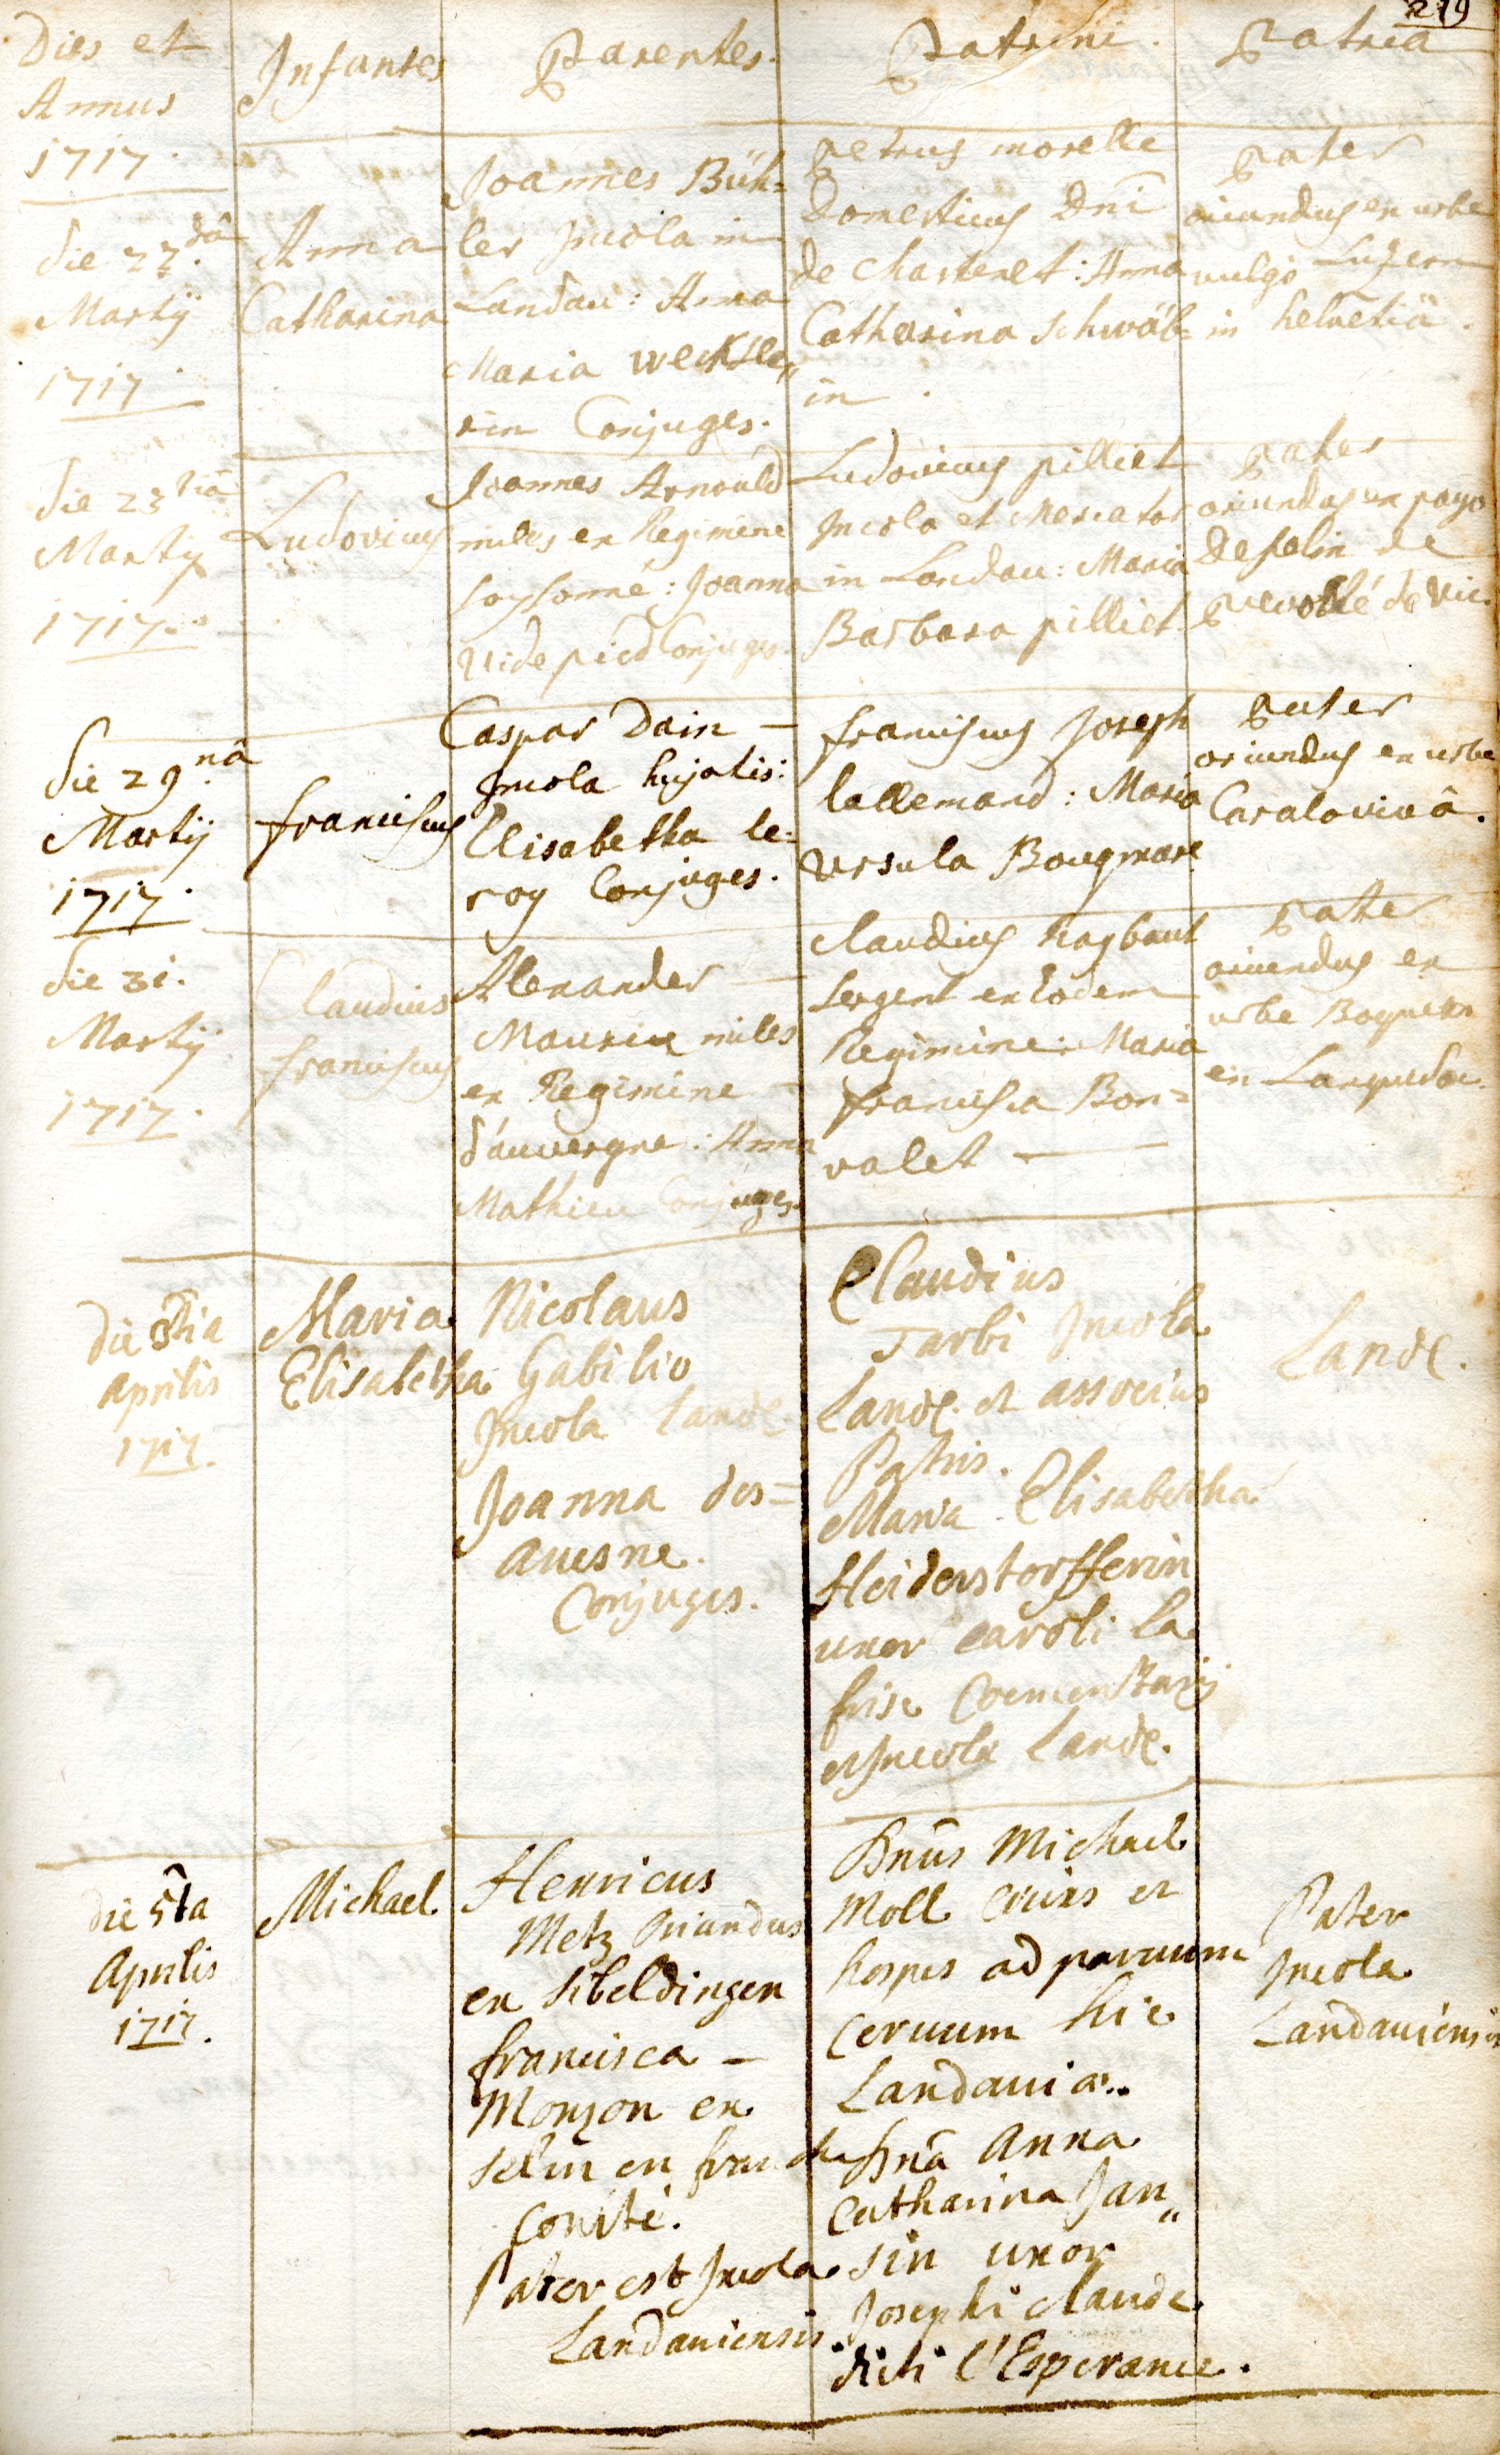 219
Dies et
Annus
1717.
Infantes
Parentes.
Patrini.
Patria
die 22.dâ
Martij
1717.
Anna
Catharina
Joannes Büh=
ler Jncola in
Landau: Anna
Maria Wecksle„
rin Conjuges.
Petrus morelle
Domesticus Dni
de Chastenet: Anna
Catharina Schwäb=
in.
Pater
oriundus ex urbe
vulgò Luzern
in helvetiâ.
die 23 tiâ
Martij
1717.
Ludovicus
Joannes Arnould
miles ex Regimene
soysonné: Joanna
Videpied Conjuges.
Ludovicus pilliet
Jncola et Mercator
in Landau: Maria
Barbara pilliet.
Pater
oriundus ex pago
Deselin de
Prevoté de Vic.
die 29.nâ
Martij
1717.
franciscus
Caspar Dain —
Jncola hujatis:
Elisabetha le=
roy Conjuges.
franciscus Joseph
lallemand: Maria
Ursula Bougmare
Pater
oriundus ex urbe
Caralovicâ.
die 31.
Martij
1717.
Claudius
franciscus
Alexander —
Maurice miles
ex Regimine —
d'auvergne: Anna
Mathieu Conjuges.
Claudius Raybaut
Sergent ex Eodem
Regimine: Maria
francisca Bon=
valet —
Pater
oriundus ex
urbe Bagners
en Languedoc.
die 3tia
Aprilis
1717.
Maria
Elisabetha
Nicolaus
Gabilio
Jncola Landę.
Joanna des=
Avesne.
Conjuges.
Claudius
Tarbi Jncola
Landę. et associus
Patris.
Maria Elisabetha
Heiderstorfferin
uxor Caroli La
frise Coementarij
et Jncolæ Landę.
Landę.
die 5ta
Aprilis
1717.
Michael
Henricus
Metz Oriundus
ex Sibeldingen
francisca —
Monzon ex
Selin en franche
Comté.
Pater est Jncola
Landaviensis.
Dnûs Michael
Moll Civis et
hospes ad parvum
Cervum hic
Landaviæ.
Dnâ Anna
Catharina Jan„
sin uxor
Josephi claude
dicti l'Esperance.
Pater
Jncola
Landaviensis